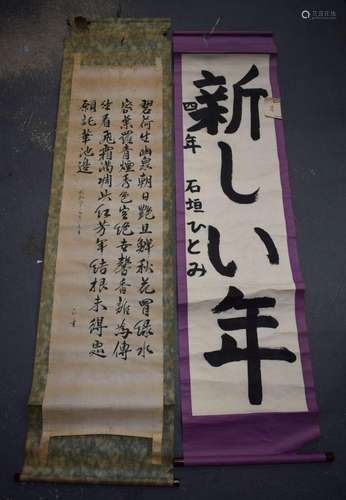 新しい年
四年 石垣ひとみ
碧荷生幽泉朝日艶且鮮秋花冒緑水
密葉羅青煙秀色空絶世馨香誰為傳
坐看飛霜満凋此紅芳年結根未得所
願託華池邊